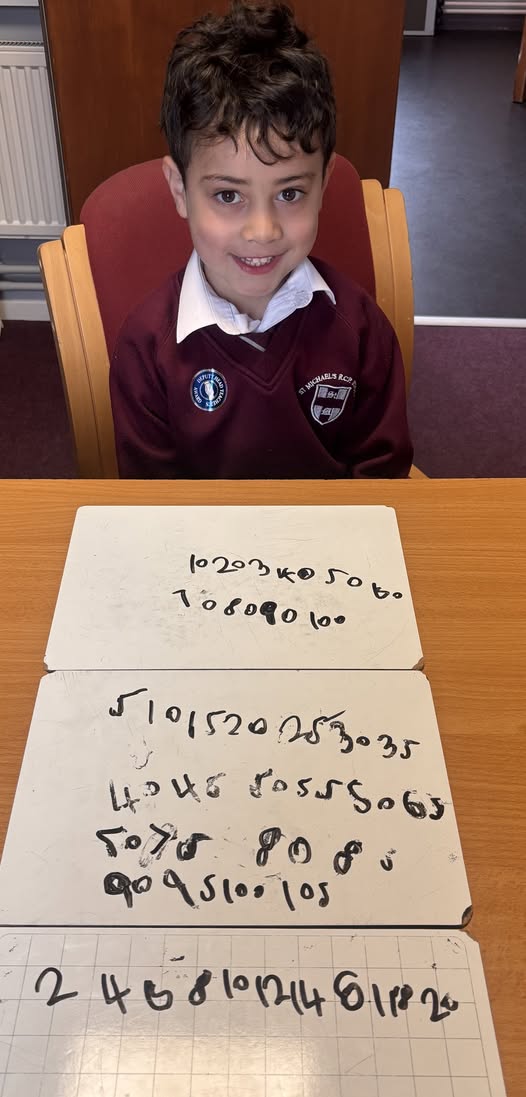 DEPUTY HEAD TEACHER'S AWARD
ST MICHAEL'S R.C.P.
10 20 3 40 50 60
70 80 90 100
5 10 15 20 25 30 35
40 45 50 55 50 65
50 75 80 8
90 95 100 105
2 4 6 8 10 12 14 6 18 20